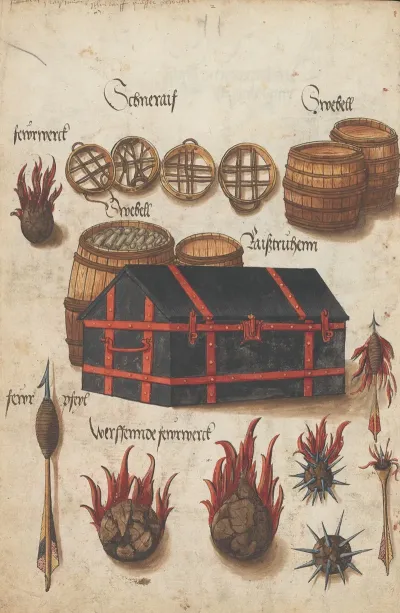 Schneraif
Swebell
fewrwerck
Swebell
Raißtruhenn
fewr pfeyl
Werffennde fewrwerck